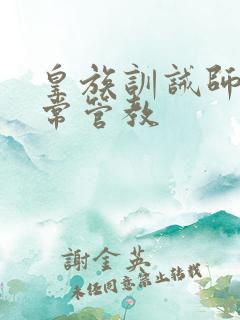 皇族訓誡師
常管教
謝金英
未经同意禁止转载